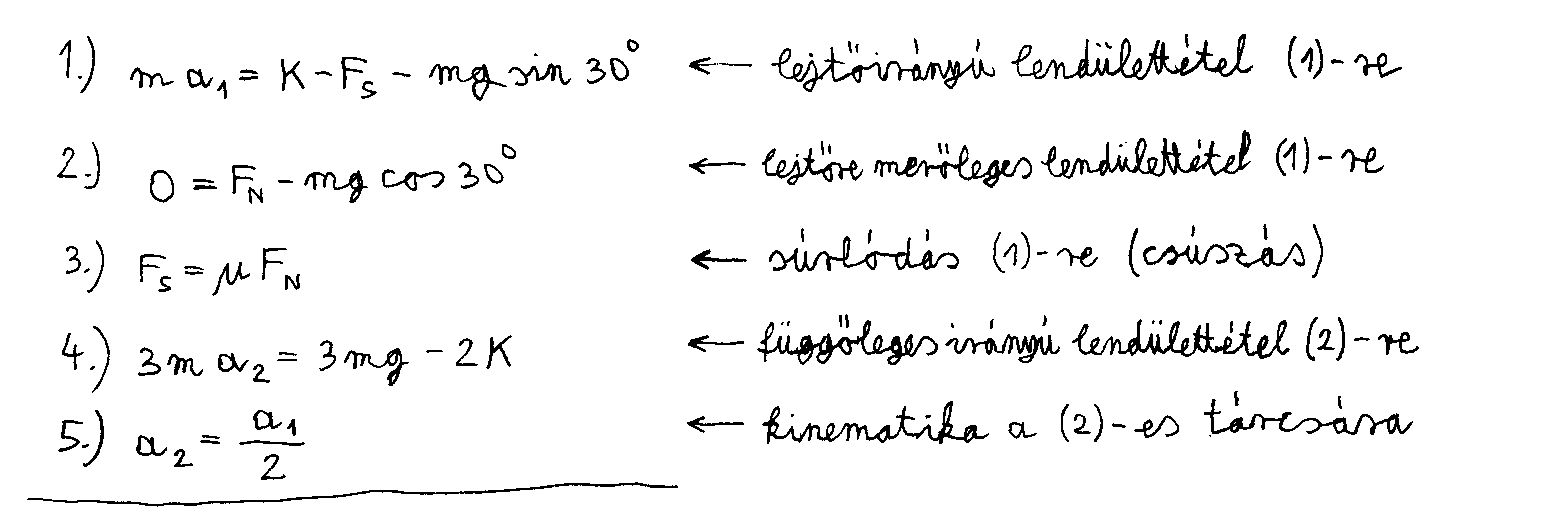 1.) m a₁ = K - F_S - mg sin 30° ← lejtőirányú lendülettétel (1)-re
2.) 0 = F_N - mg cos 30° ← lejtőre merőleges lendülettétel (1)-re
3.) F_S = μ F_N ← súrlódás (1)-re (csúszás)
4.) 3m a₂ = 3mg - 2K ← függőleges irányú lendülettétel (2)-re
5.) a₂ = a₁/2 ← kinematika a (2)-es tárcsára